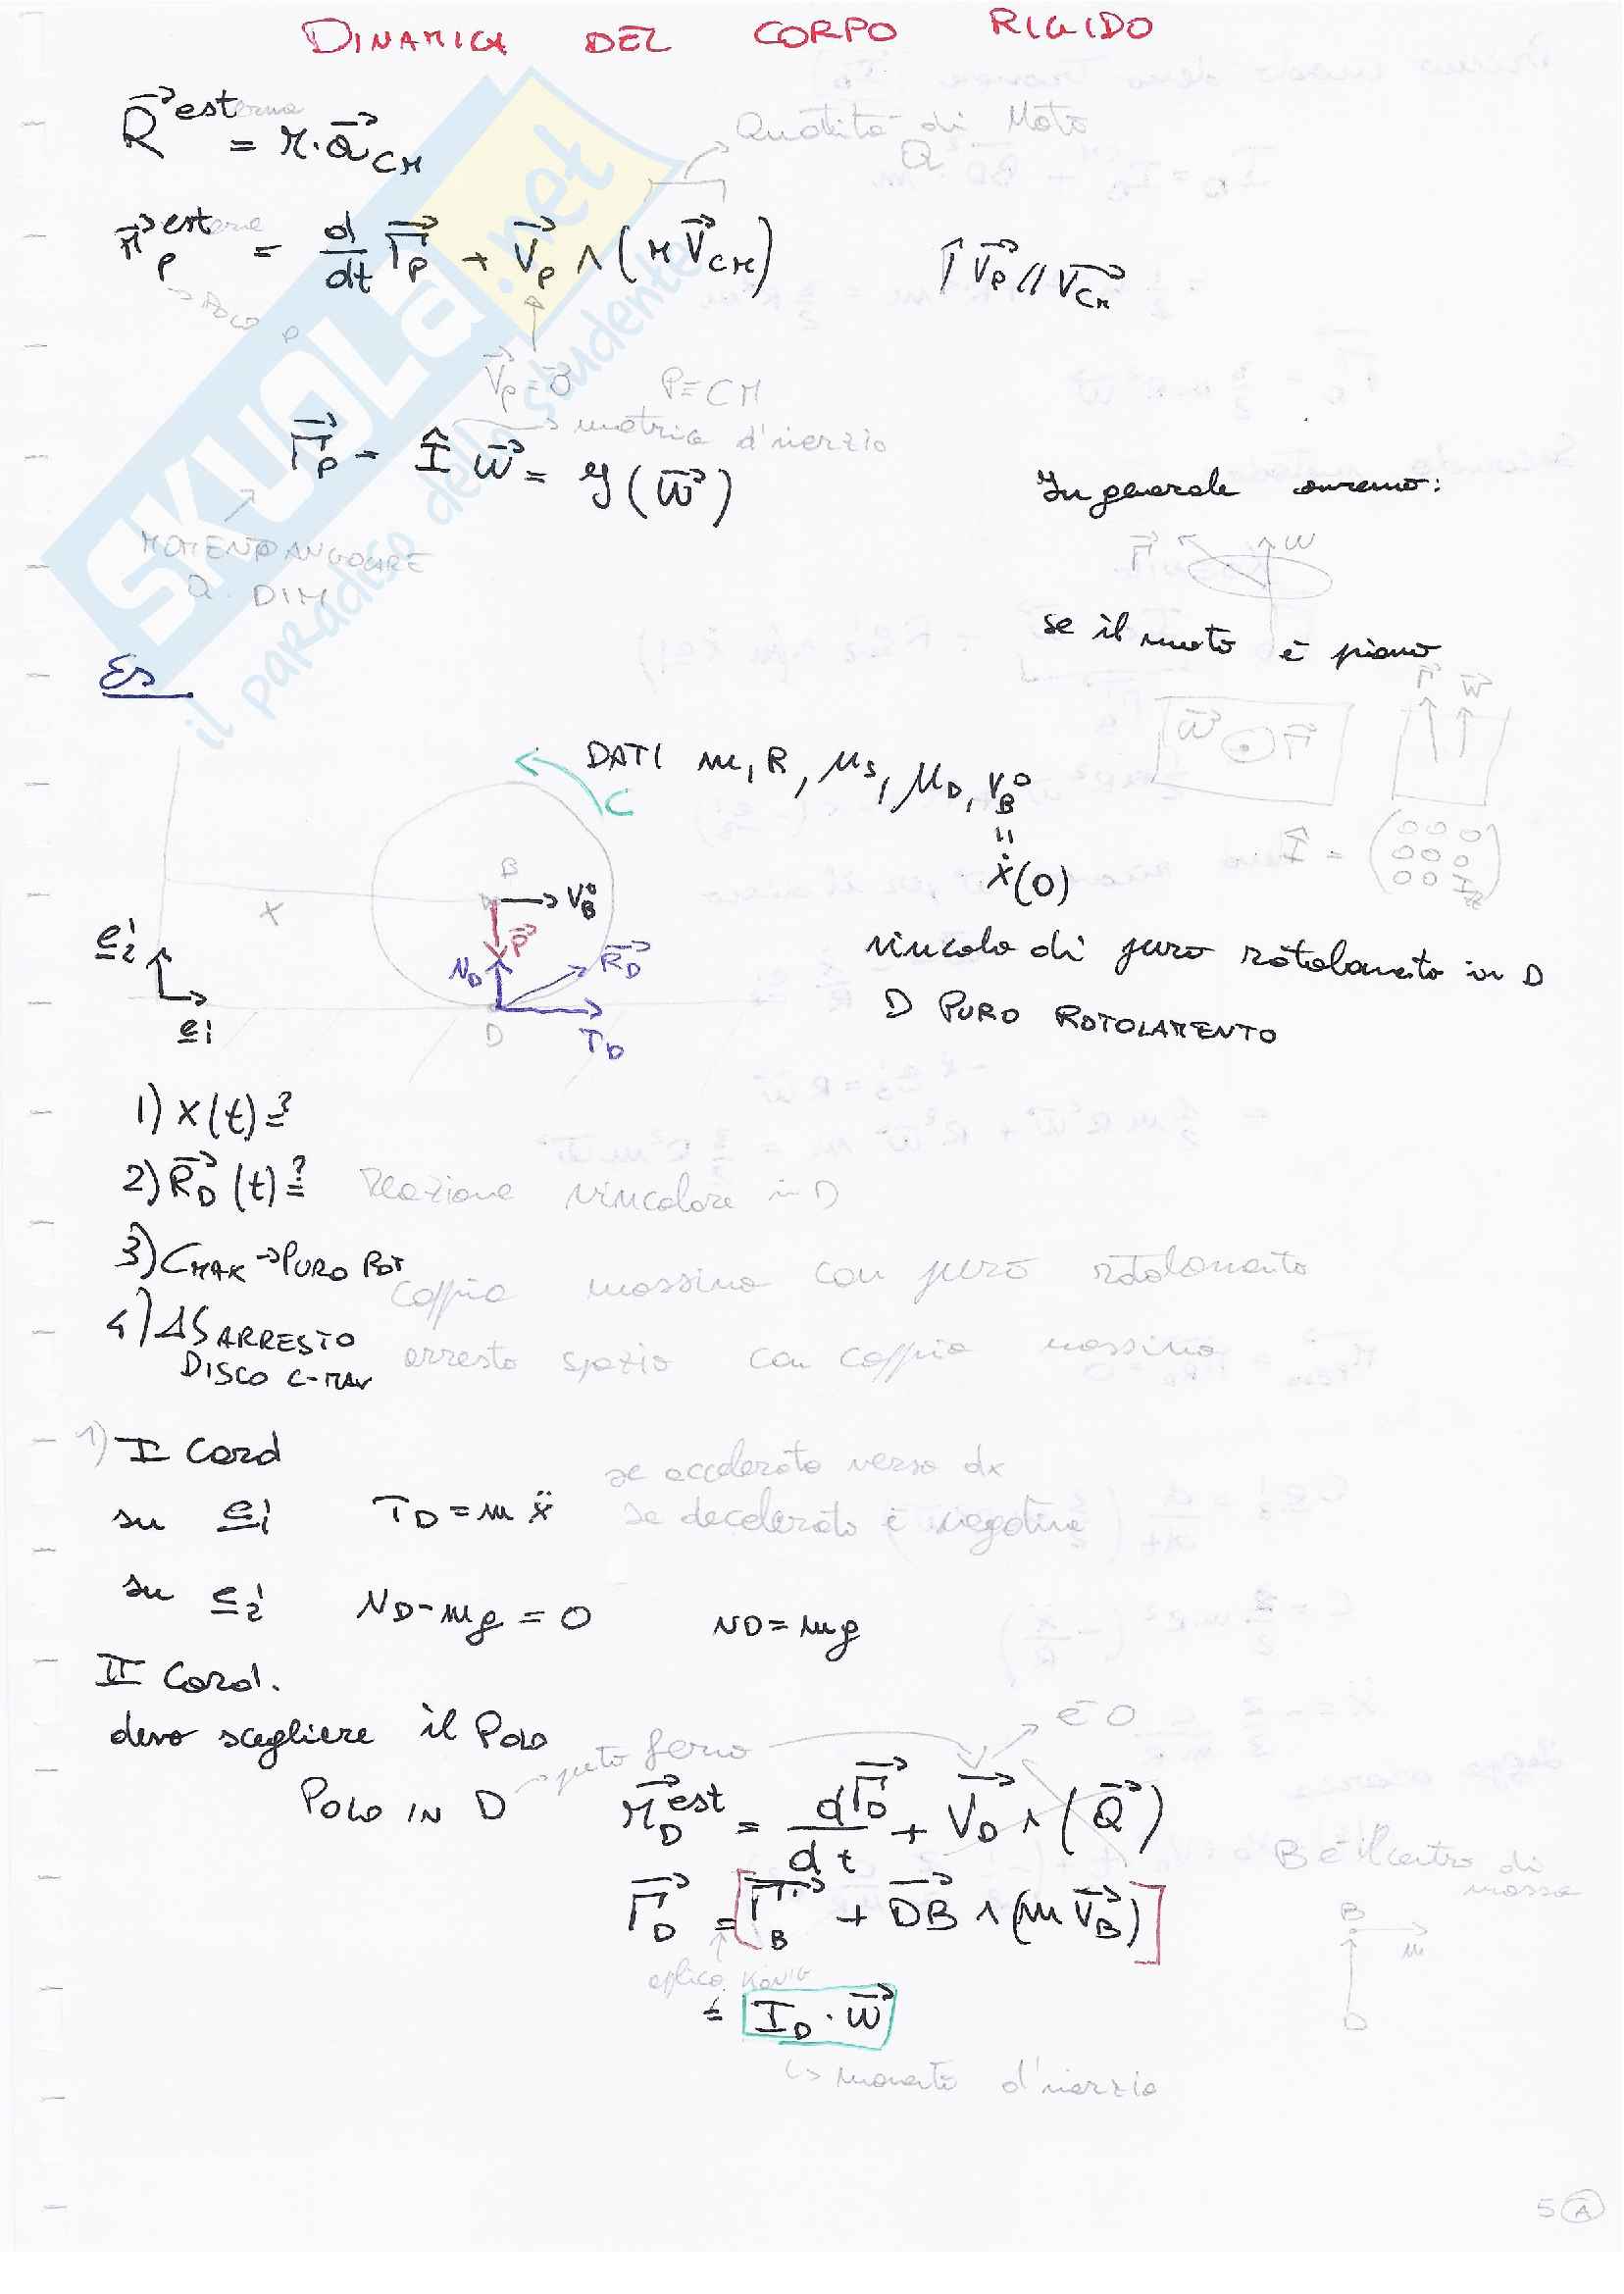 DINAMICA DEL CORPO RIGIDO
R⃗ esterna = M·a⃗_CM
Quantità di Moto
Q⃗
M⃗_P esterne = d/dt Γ⃗_P + V⃗_P ∧ (M V⃗_CM)
V⃗_P // V⃗_CM
→ POLO P
V⃗_P = 0⃗ P≡CM
→ matrice d'inerzia
Γ⃗_P = Î w⃗ = I(w⃗)
MOMENTO ANGOLARE
Q. DIM
In generale avremo:
Γ⃗ w
se il moto è piano
Γ⃗ w⃗
w⃗ ⊙ Γ⃗
Î = (0 0 0
0 0 0
0 0 Izz)
Es
DATI m, R, μs, μD, V_B°
=
ẋ(0)
C
B
V_B°
X
P⃗
N_D
R⃗_D
D
T_D
e2
e1
vincolo di puro rotolamento in D
D PURO ROTOLAMENTO
1) x(t)=?
2) R⃗_D(t)=? Reazione vincolare in D
3) C_MAX → PURO ROT coppia massima con puro rotolamento
4) ΔS ARRESTO DISCO C-MAX arresto spazio con coppia massima
1) I Card
se accelerato verso dx
su e1 T_D = m ẍ se decelerato è negativa
su e2 N_D - mg = 0 ND = mg
II Card.
devo scegliere il Polo
è 0
POLO IN D → punto fermo
M⃗_D est = dΓ⃗_D/dt + V⃗_D ∧ (Q⃗)
B è il centro di massa
Γ⃗_D = [Γ⃗_B + D⃗B ∧ (m V⃗_B)]
applico KÖNIG
= I_D · w⃗
↳ momento d'inerzia
B
D
5 A
SKUOLA.net
il paradiso dello studente